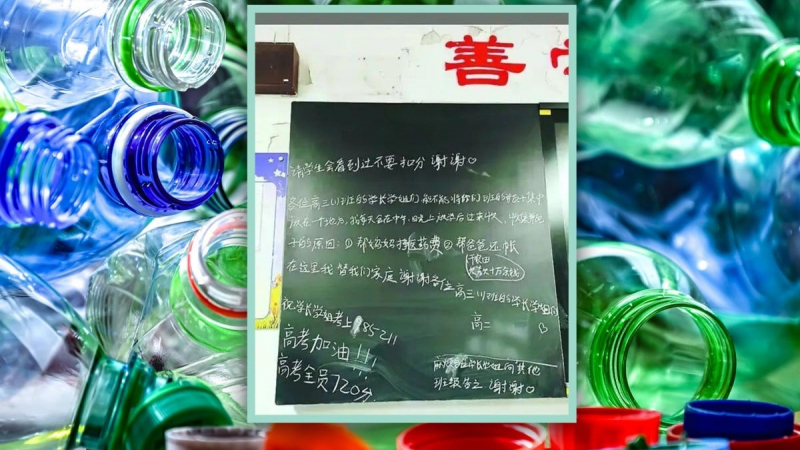 善
请学生会看到过不要扣分 谢谢♡
各位高三(1)班的学长学姐们 能不能将你们班的瓶子集中
放在一个地方,我每天会在中午、晚上放学后过来收,收集瓶
子的原因:①帮妈妈攒药费 ②帮爸爸还帐
在这里我替我们家庭 谢谢各位高三(1)班的学长学姐们
高二 ♡
祝学长学姐考上985-211
高考加油!!!
高考全员720分
麻烦各位学长学姐向其他
班级告之 谢谢♡